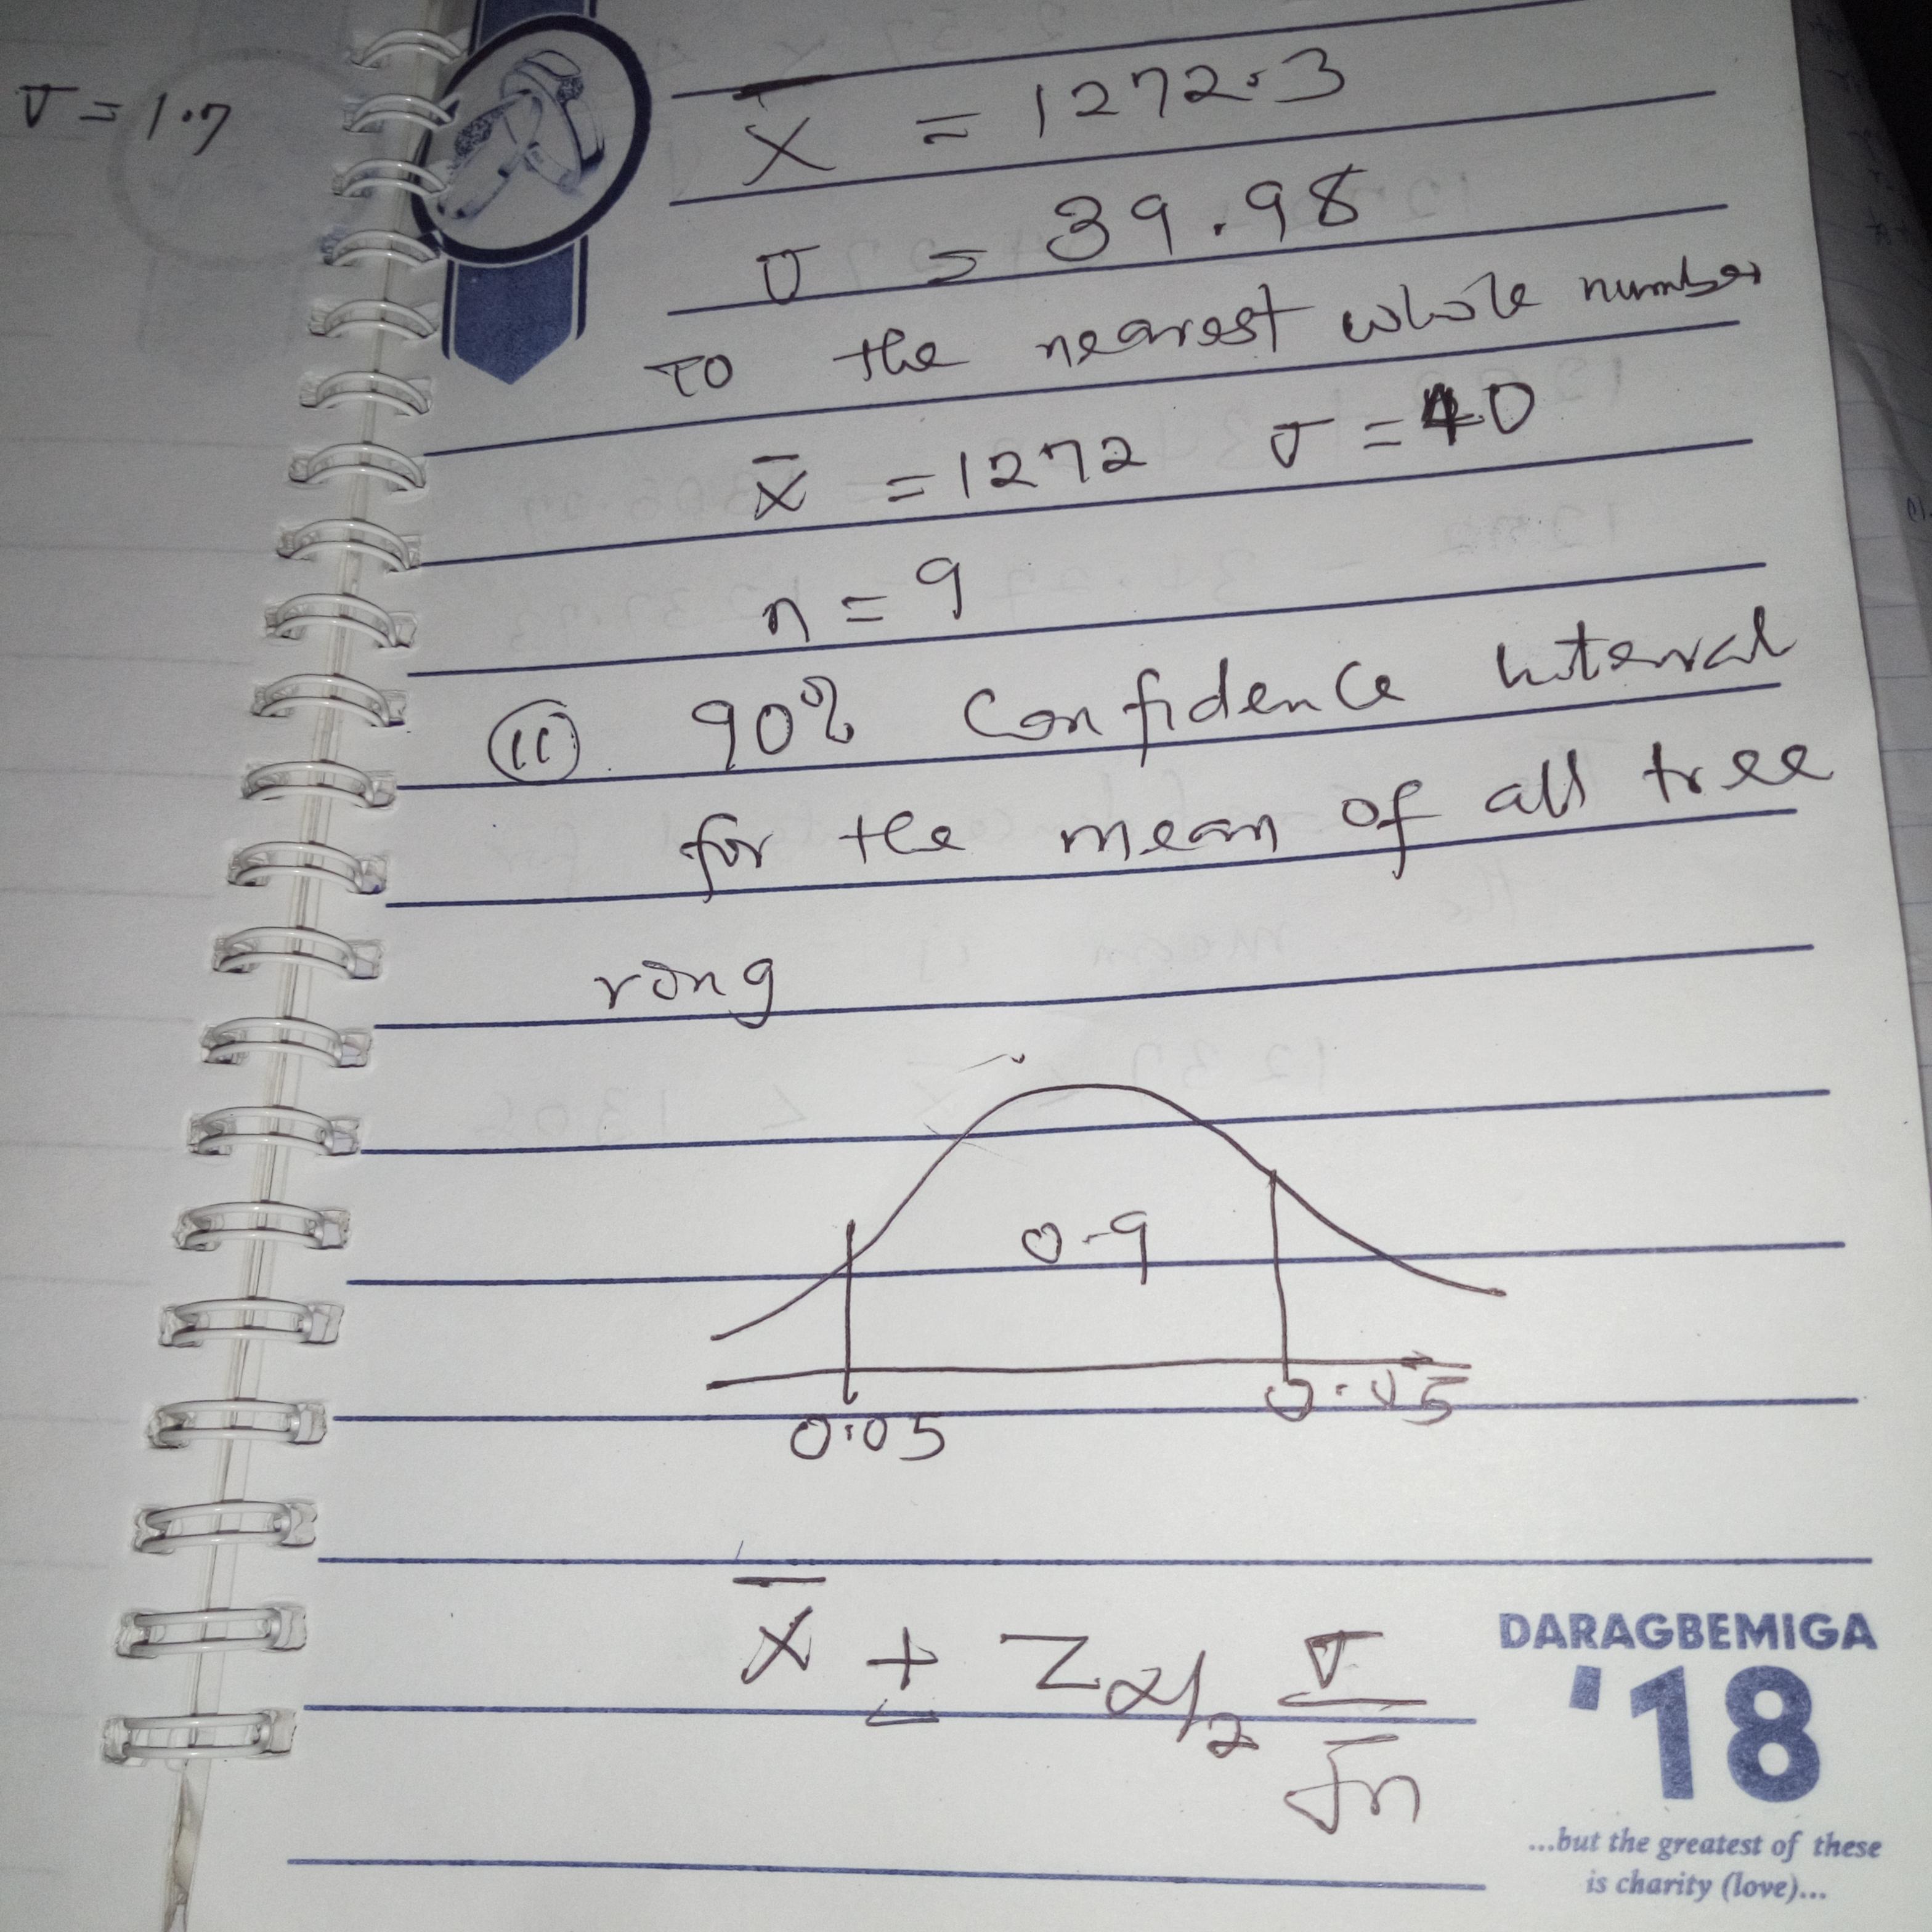 σ = 1.7
x̄ = 1272.3
σ = 39.98
To the nearest whole number
x̄ = 1272 σ = 40
n = 9
(ii) 90% Confidence Interval
for the mean of all tree
ring
0.9
0.05 0.05
x̄ ± Zα/2 σ/√n
DARAGBEMIGA
'18
...but the greatest of these
is charity (love)...